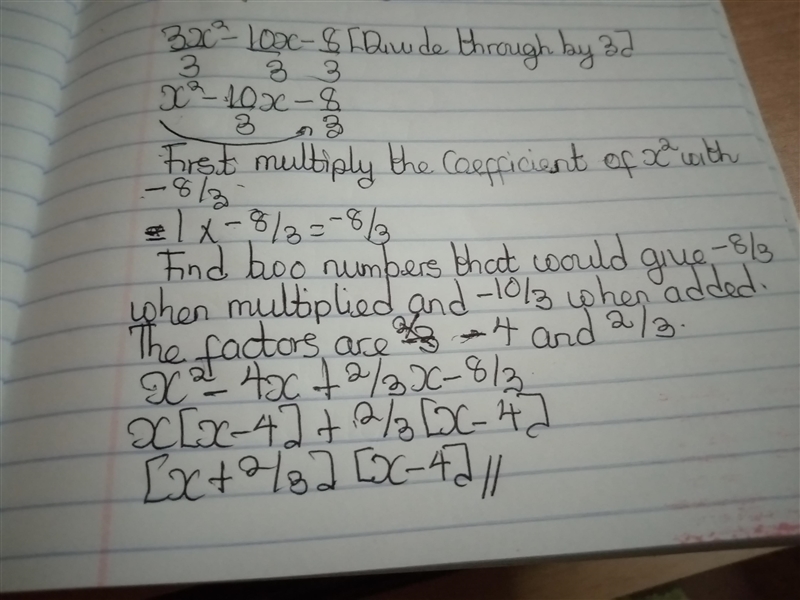 3x² - 10x - 8 [Divide through by 3]
3 3 3
x² - 10x - 8
3 3
First multiply the Coefficient of x² with
- 8/3
= 1 x - 8/3 = -8/3
Find two numbers that would give -8/3
when multiplied and -10/3 when added.
The factors are -4 and 2/3.
x² - 4x + 2/3x - 8/3
x[x-4] + 2/3[x-4]
[x+2/3] [x-4]//